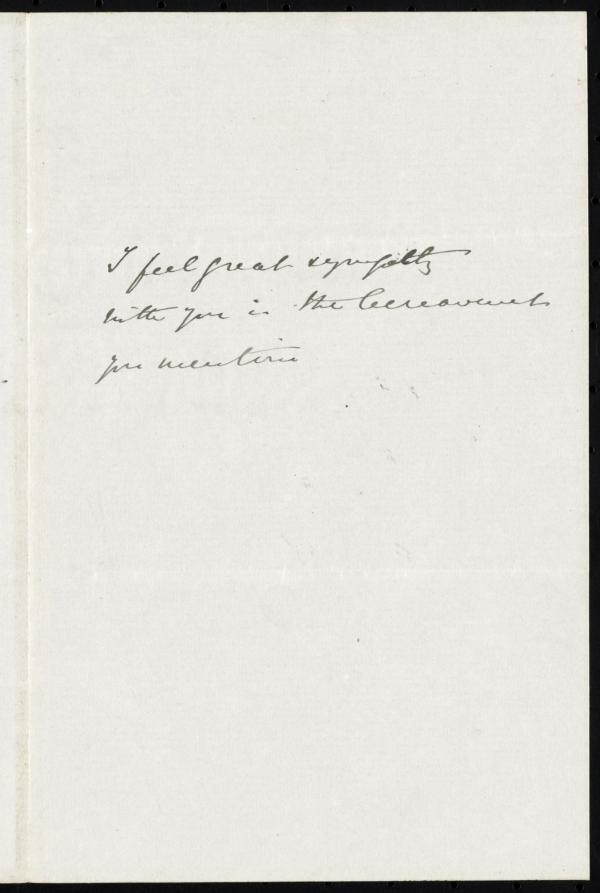 I feel great sympathy
with you in the bereavement
you mention